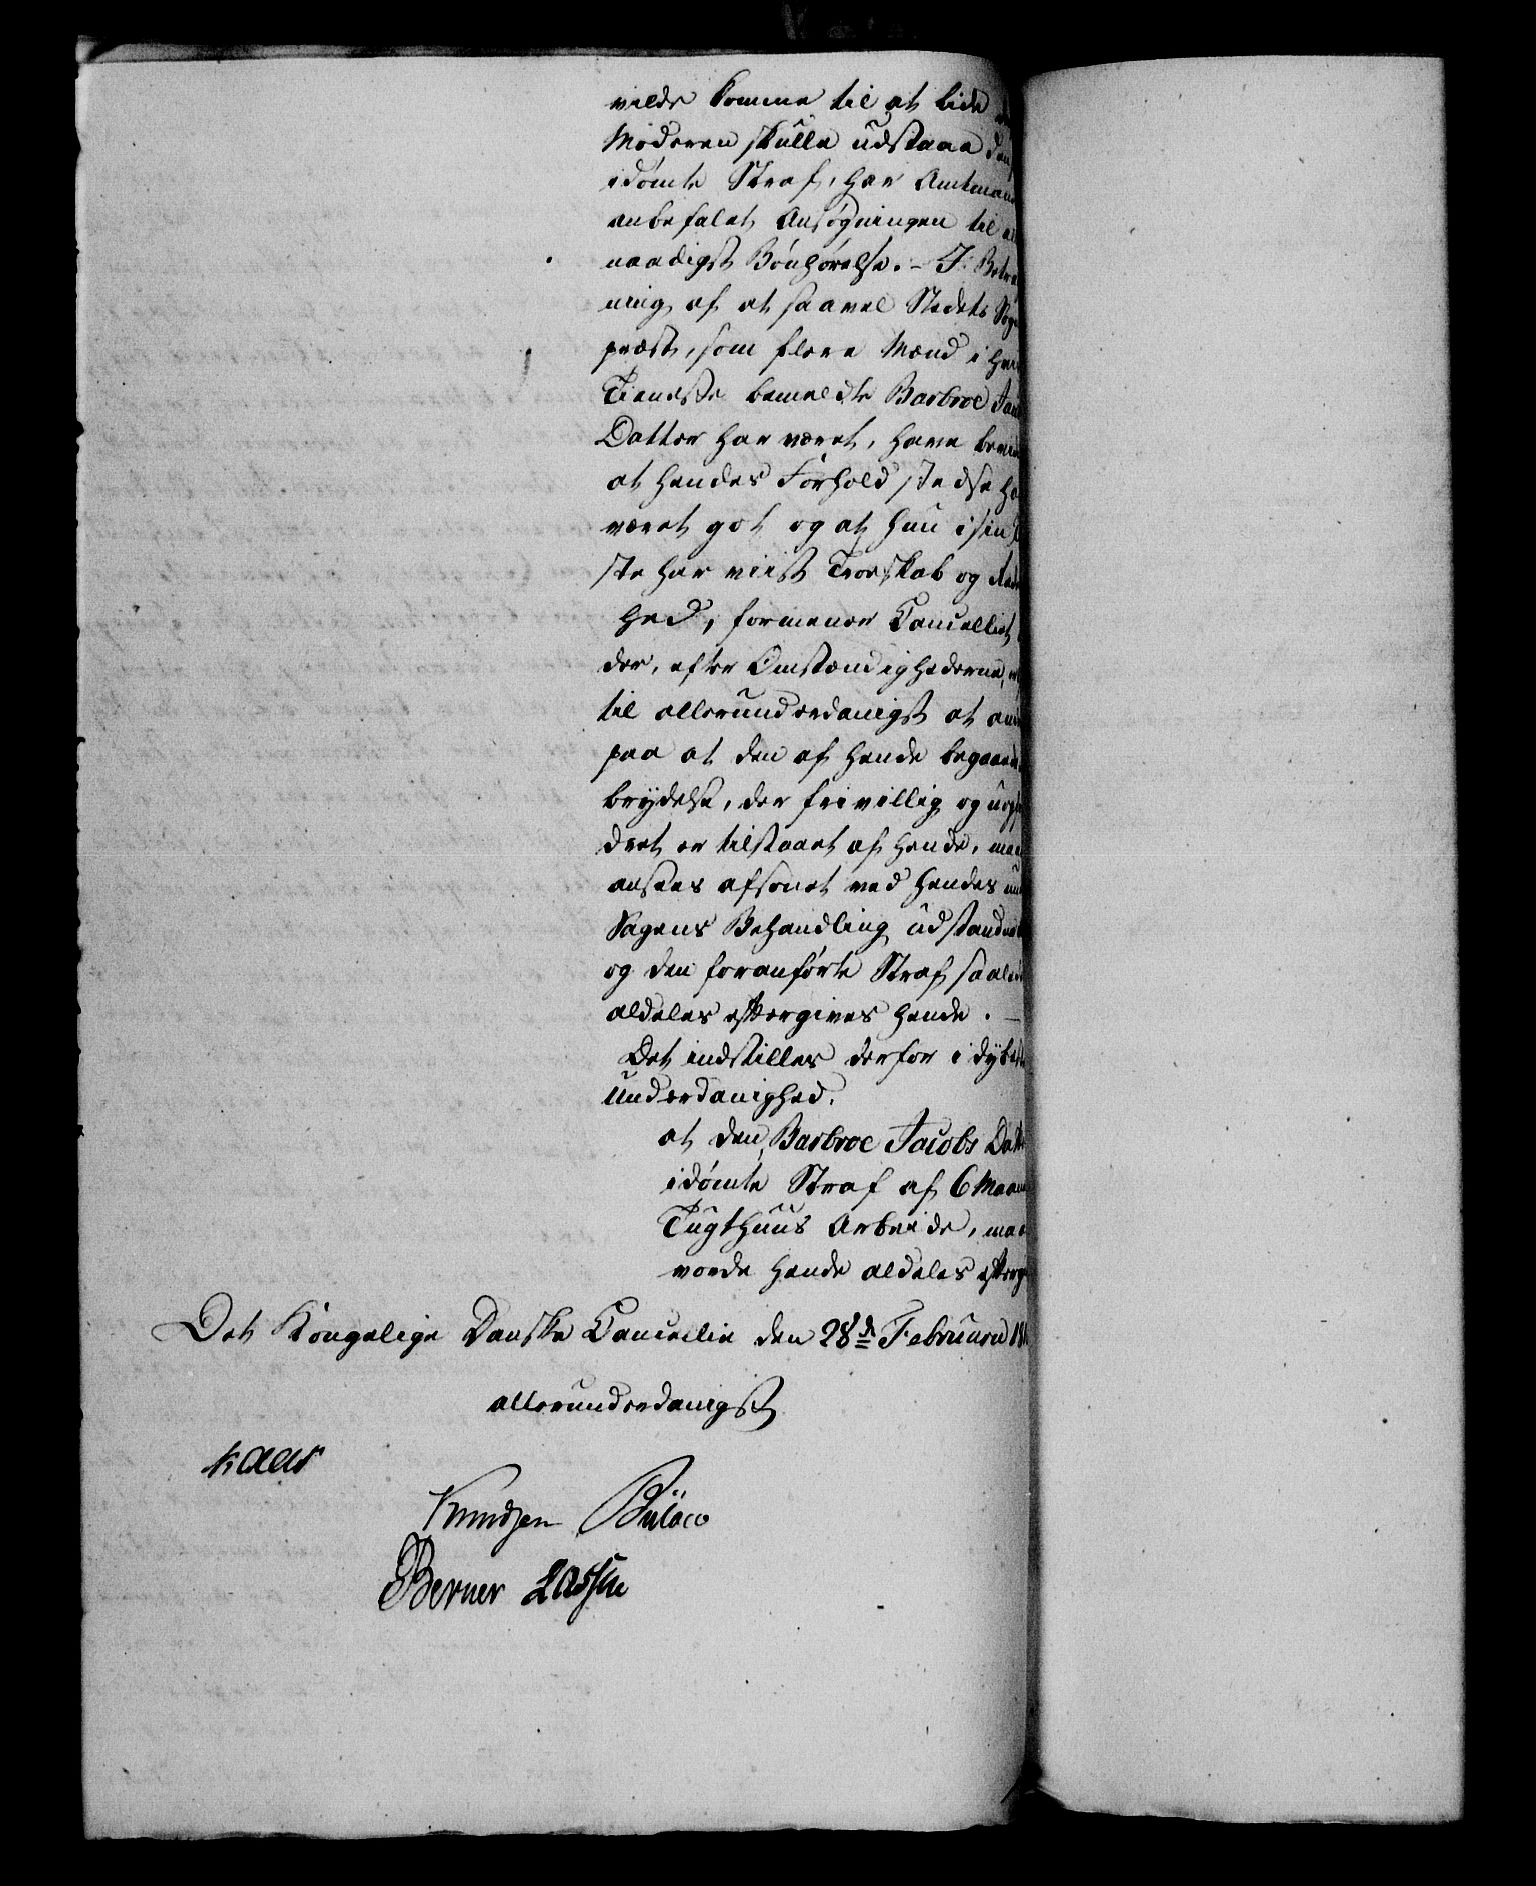 vilde komme til at lide
Moderen skulle udstaae den
idømte Straf, har Amtmand
anbefalet Ansøgningen til al
naadigst Bønhørelse. – I Betra
ning af at saavel Stedets Sogn
præst, som flere Mænd i hvis
Tieneste bemeldte Barbroe Jac
Datter har været, have bevi
at hendes Forhold stedse ha
været got og at hun i sin
ste har viist Troeskab og Red
hed, formener Cancelliet
der, efter Omstændighederne,
til allerunderdanigst at an
paa at den af hende begaaed
brydelse, der frivillig og uopfor
dret er tilstaaet af hende, maa
ansees afsonet ved hendes un
Sagens Behandling udstandne
og den foranførte Straf saaled
aldeles eftergives hende. –
Det indstilles derfor i dybeste
Underdanighed,
at den, Barbroe Jacobs Datt
idømte Straf af 6 Maan
Tugthuus Arbeide, maa
vorde hende aldeles efterg
Det Kongelige Danske Cancellie den 28d Februarii 18
allerunderdanigst
Kaas
Knudsen Bülow
Berner Lassen